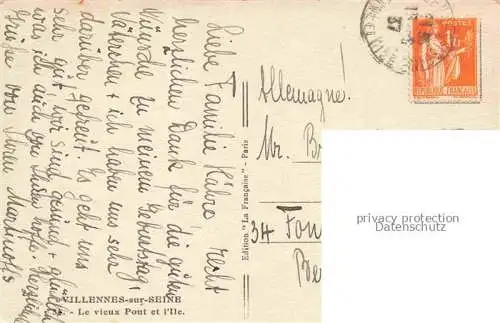 Liebe Familie Kübre, recht
herzlichen Dank für die guten
Wünsche zu meinem Geburtstag,
Väterchen + ich haben uns sehr
darüber gefreut. Es geht uns
sehr gut, wir sind gesund + glücklich
was ich auch von Ihnen hoffe. Herzliche
Grüße von Ihren
Allemagne!
Mr. B
34
Be
VILLENNES-sur-SEINE
Le vieux Pont et l'Ile.
Edition "La Française" - Paris
POSTES
REPUBLIQUE FRANÇAISE
37
privacy protection
Datenschutz